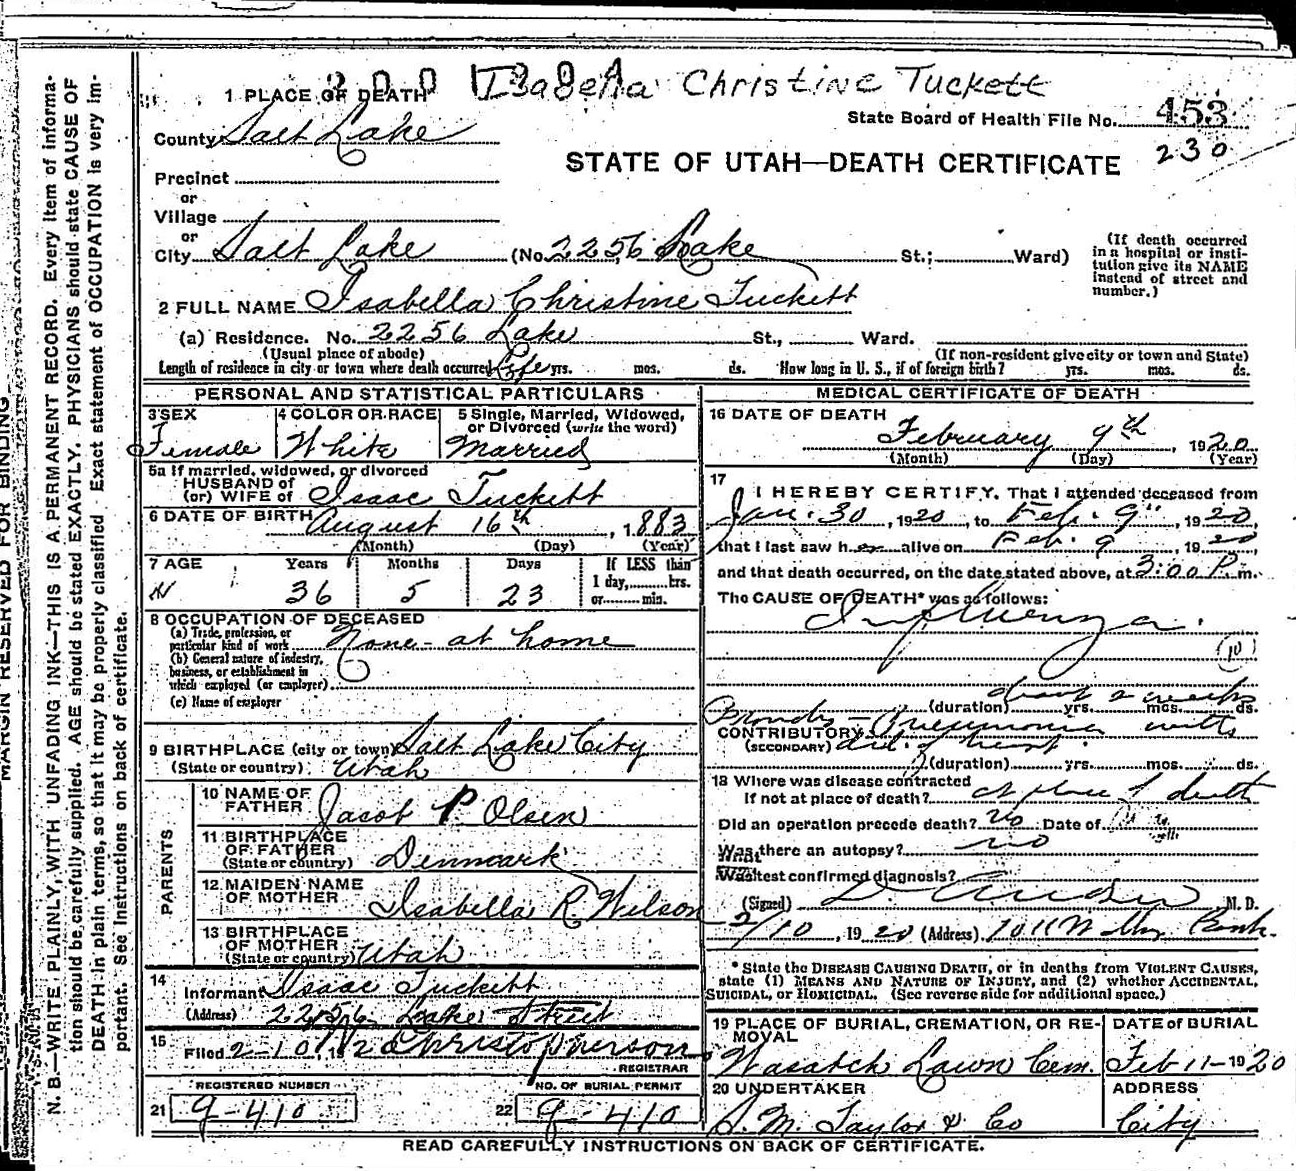 Isabella Christine Tuckett
1 PLACE OF DEATH
State Board of Health File No. 453
County Salt Lake
230
STATE OF UTAH—DEATH CERTIFICATE
Precinct
or
Village
or
City Salt Lake (No. 2256 Lake St.; Ward)
(If death occurred in a hospital or institution give its NAME instead of street and number.)
2 FULL NAME Isabella Christine Tuckett
(a) Residence. No. 2256 Lake St., Ward.
(Usual place of abode) (If non-resident give city or town and State)
Length of residence in city or town where death occurred Life yrs. mos. ds. How long in U. S., if of foreign birth? yrs. mos. ds.
PERSONAL AND STATISTICAL PARTICULARS
3 SEX Female
4 COLOR OR RACE White
5 Single, Married, Widowed, or Divorced (write the word) Married
5a If married, widowed, or divorced
HUSBAND of
(or) WIFE of Isaac Tuckett
6 DATE OF BIRTH August 16th, 1883
(Month) (Day) (Year)
7 AGE Years Months Days If LESS than
36 5 23 1 day, hrs.
or min.
8 OCCUPATION OF DECEASED
(a) Trade, profession, or
particular kind of work None - at home
(b) General nature of industry,
business, or establishment in
which employed (or employer)
(c) Name of employer
9 BIRTHPLACE (city or town) Salt Lake City
(State or country) Utah
PARENTS
10 NAME OF FATHER Jacob P. Olsen
11 BIRTHPLACE OF FATHER
(State or country) Denmark
12 MAIDEN NAME OF MOTHER Isabella R Wilson
13 BIRTHPLACE OF MOTHER
(State or country) Utah
14 Informant Isaac Tuckett
(Address) 2256 Lake Street
15 Filed 2-10, 192 Christopherson
REGISTRAR
REGISTERED NUMBER NO. OF BURIAL PERMIT
21 9-410 22 9-410
MEDICAL CERTIFICATE OF DEATH
16 DATE OF DEATH
February 9th 1920
(Month) (Day) (Year)
17 I HEREBY CERTIFY, That I attended deceased from
Jan. 30, 1920, to Feb. 9", 1920,
that I last saw her alive on Feb. 9, 1920
and that death occurred, on the date stated above, at 3:00 P. m.
The CAUSE OF DEATH* was as follows:
Influenza.
(10)
about 2 weeks
(duration) yrs. mos. ds.
Broncho-Pneumonia with
CONTRIBUTORY
(SECONDARY) dil. of heart.
(duration) yrs. mos. ds.
18 Where was disease contracted
If not at place of death? at place of death
Did an operation precede death? no Date of
Was there an autopsy? no
What test confirmed diagnosis?
(Signed) M. D.
2/10, 1920 (Address) 1011 Bank.
* State the DISEASE CAUSING DEATH, or in deaths from VIOLENT CAUSES,
state (1) MEANS AND NATURE OF INJURY, and (2) whether ACCIDENTAL,
SUICIDAL, or HOMICIDAL. (See reverse side for additional space.)
19 PLACE OF BURIAL, CREMATION, OR REMOVAL
Wasatch Lawn Cem.
DATE of BURIAL
Feb 11-1920
20 UNDERTAKER
S. M. Taylor & Co
ADDRESS
City
READ CAREFULLY INSTRUCTIONS ON BACK OF CERTIFICATE.
MARGIN RESERVED FOR BINDING
N. B.—WRITE PLAINLY, WITH UNFADING INK—THIS IS A PERMANENT RECORD. Every item of informa-
tion should be carefully supplied. AGE should be stated EXACTLY. PHYSICIANS should state CAUSE OF
DEATH in plain terms, so that it may be properly classified. Exact statement of OCCUPATION is very im-
portant. See instructions on back of certificate.